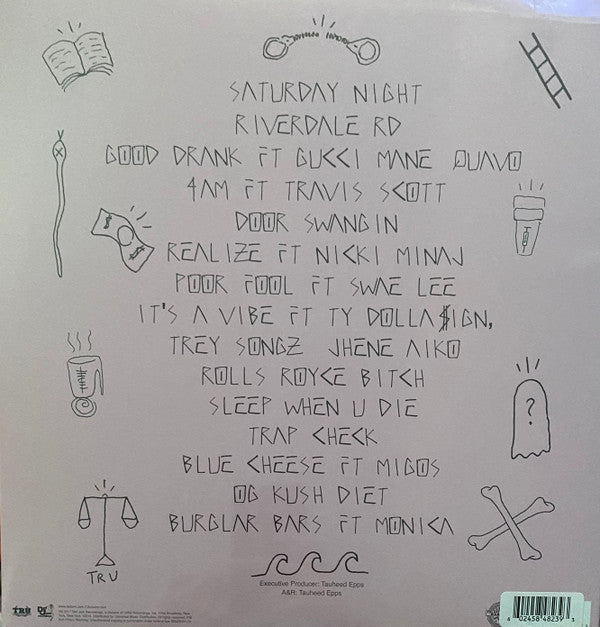 SATURDAY NIGHT
RIVERDALE RD
GOOD DRANK FT GUCCI MANE QUAVO
4AM FT TRAVIS SCOTT
DOOR SWANGIN
REALIZE FT NICKI MINAJ
POOR FOOL FT SWAE LEE
IT'S A VIBE FT TY DOLLA $IGN,
TREY SONGZ JHENE AIKO
ROLLS ROYCE BITCH
SLEEP WHEN U DIE
TRAP CHECK
BLUE CHEESE FT MIGOS
OG KUSH DIET
BURGLAR BARS FT MONICA
$ $
?
TRU
Executive Producer: Tauheed Epps
A&R: Tauheed Epps
TRU DEF JAM
6 02458 48239